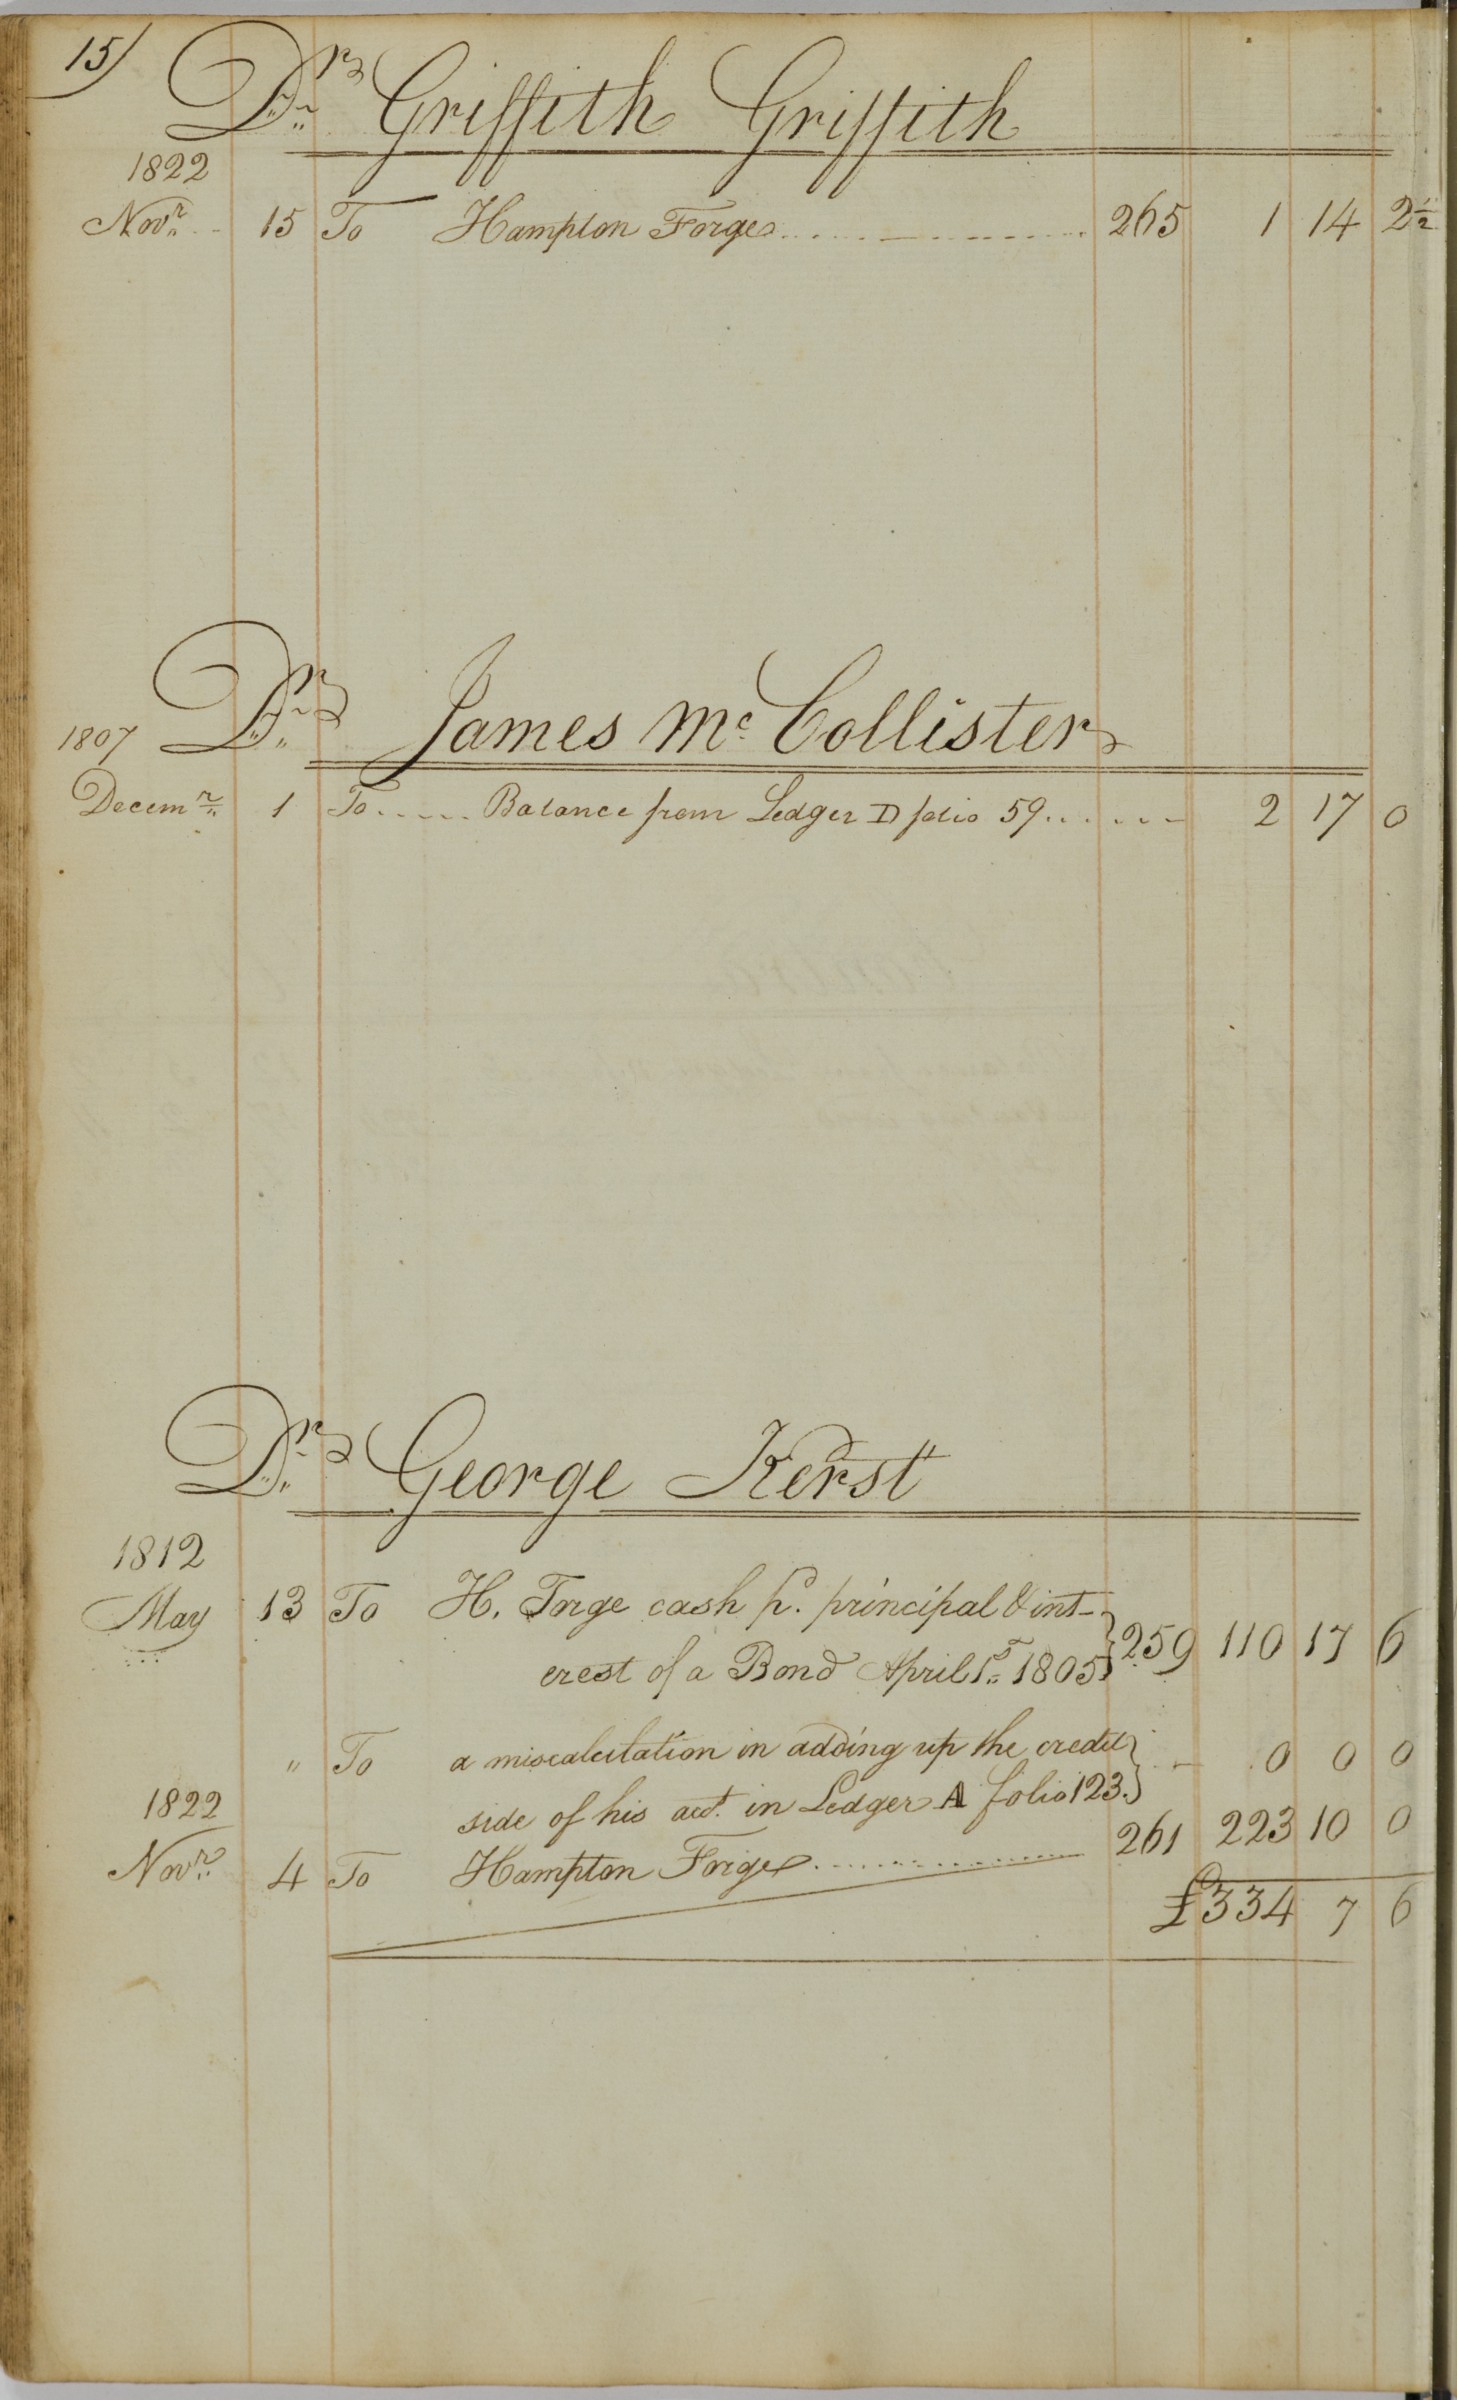 15)
Dr Griffith Griffith
1822
Novr 15 To Hampton Forge 265 1 14 2½
Dr James Mc Collister
1807
Decemr 1 To Balance from Ledger D folio 59 2 17 0
Dr George Kerst
1812
May 13 To H. Forge cash p. principal & int-
erest of a Bond April 1st 1805 259 110 17 6
" To a miscalculation in adding up the credit
side of his acct. in Ledger A folio 123. 0 0 0
1822
Novr 4 To Hampton Forge 261 223 10 0
£334 7 6